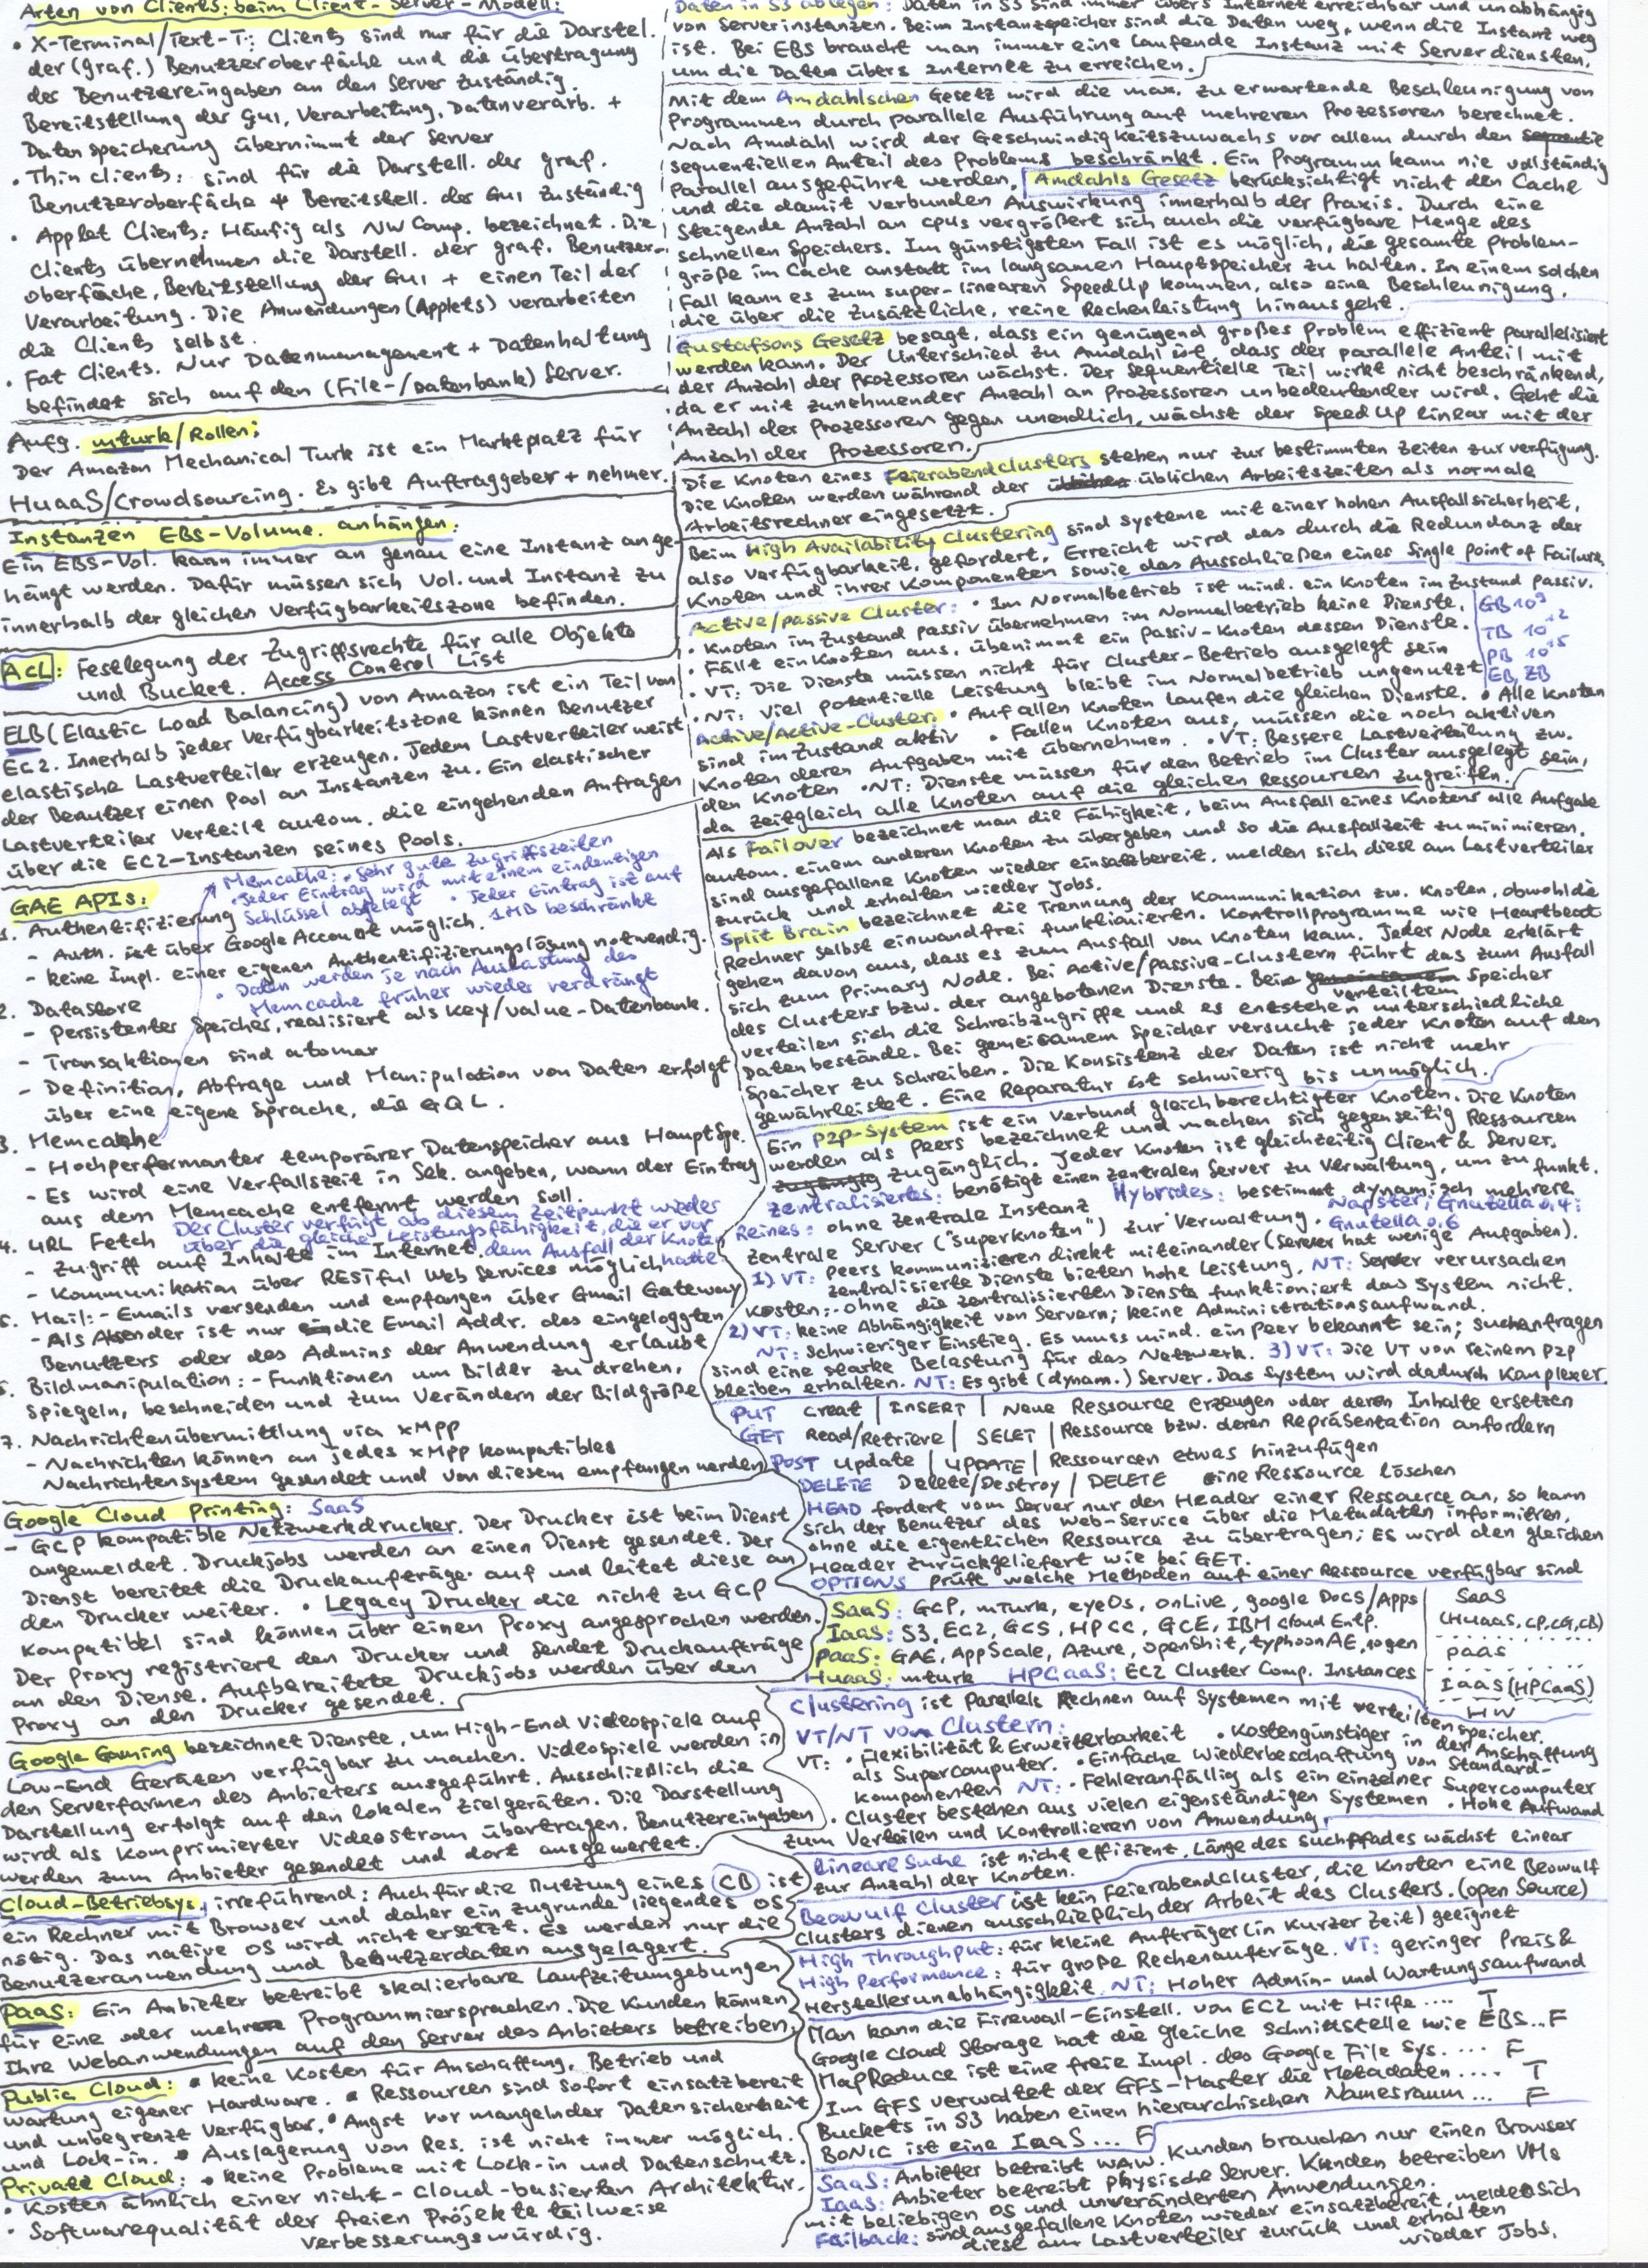 Arten von Clients: beim Client-Server-Modell:
• X-Terminal/Text-T.: Clients sind nur für die Darstel.
der (graf.) Benutzeroberfäche und die übertragung
des Benutzereingaben an den Server zuständig.
Bereitstellung der GUI, Verarbeitung, Datenverarb. +
Datenspeicherung übernimmt der Server
• Thin clients: sind für die Darstell. der graf.
Benutzeroberfäche + Bereitstell. der GUI zuständig
• Applet Clients: Häufig als NW Comp. bezeichnet. Die
Clients übernehmen die Darstell. der graf. Benutzer-
oberfäche, Bereitstellung der GUI + einen Teil der
Verarbeitung. Die Anwendungen (Applets) verarbeiten
die Clients selbst.
• Fat Clients. Nur Datenmanagement + Datenhaltung
befindet sich auf den (File-/Datenbank) Server.
Aufg. mturk/Rollen:
Der Amazon Mechanical Turk ist ein Marktplatz für
HuaaS/Crowdsourcing. Es gibt Auftraggeber + nehmer.
Instanzen EBS-Volume anhängen:
Ein EBS-Vol. kann immer an genau eine Instanz ange-
hängt werden. Dafür müssen sich Vol. und Instanz zu
innerhalb der gleichen Verfügbarkeitszone befinden.
ACL: Festlegung der Zugriffsrechte für alle Objekte
und Bucket. Access Control List
ELB (Elastic Load Balancing) von Amazon ist ein Teil von
EC2. Innerhalb jeder Verfügbarkeitszone können Benutzer
elastische Lastverteiler erzeugen. Jedem Lastverteiler weist
der Benutzer einen Pool an Instanzen zu. Ein elastischer
Lastverteiler verteilt autom. die eingehenden Anfragen
über die EC2-Instanzen seines Pools.
Memcache: • Sehr gute Zugriffszeiten
• Jeder Eintrag wird mit einem eindeutigen
Schlüssel abgelegt • Jeder Eintrag ist auf
1MB beschränkt
GAE APIs:
1. Authentifizierung
- Auth. ist über Google Account möglich.
- keine Impl. einer eigenen Authentifizierungslösung notwendig.
• Daten werden je nach Auslastung des
Memcache früher wieder verdrängt
2. Datastore
- Persistenter Speicher, realisiert als Key/value-Datenbank.
- Transaktionen sind atomar
- Definition, Abfrage und Manipulation von Daten erfolgt
über eine eigene Sprache, die GQL.
3. Memcache
- Hochperformanter temporärer Datenspeicher aus Hauptspe.
- Es wird eine Verfallszeit in Sek. angeben, wann der Eintrag
aus dem Memcache entfernt werden soll.
Der Cluster verfügt ab diesem Zeitpunkt wieder
über die gleiche Leistungsfähigkeit, die er vor
dem Ausfall der Knoten hatte.
4. URL Fetch
- Zugriff auf Inhalte im Internet
- Kommunikation über RESTful Web Services möglich
5. Mail: - Emails versenden und empfangen über Gmail Gateway
- Als Absender ist nur die Email Addr. des eingeloggten
Benutzers oder des Admins der Anwendung erlaubt
6. Bildmanipulation: - Funktionen um Bilder zu drehen,
spiegeln, beschneiden und zum Verändern der Bildgröße
7. Nachrichtenübermittlung via XMPP
- Nachrichten können an jedes XMPP kompatibles
Nachrichtensystem gesendet und von diesem empfangen werden
Google Cloud Printing: SaaS
- GCP kompatible Netzwerkdrucker. Der Drucker ist beim Dienst
angemeldet. Druckjobs werden an einen Dienst gesendet. Der
Dienst bereitet die Druckaufträge auf und leitet diese an
den Drucker weiter. • Legacy Drucker die nicht zu GCP
kompatibel sind können über einen Proxy angesprochen werden.
Der Proxy registriert den Drucker und sendet Druckaufträge
an den Dienst. Aufbereitete Druckjobs werden über den
Proxy an den Drucker gesendet.
Google Gaming bezeichnet Dienste, um High-End Videospiele auf
Low-End Geräten verfügbar zu machen. Videospiele werden in
den Serverfarmen des Anbieters ausgeführt. Ausschließlich die
Darstellung erfolgt auf den lokalen Zielgeräten. Die Darstellung
wird als komprimierter Videostrom übertragen. Benutzereingaben
werden zum Anbieter gesendet und dort ausgewertet.
Cloud-Betriebsys. irreführend: Auch für die Nutzung eines CB ist
ein Rechner mit Browser und daher ein zugrunde liegendes OS
nötig. Das native OS wird nicht ersetzt. Es werden nur die
Benutzeranwendung und Benutzerdaten ausgelagert.
PaaS: Ein Anbieter betreibt skalierbare Laufzeitumgebungen
für eine oder mehrere Programmiersprachen. Die Kunden können
Ihre Webanwendungen auf den Server des Anbieters betreiben.
Public Cloud: • keine Kosten für Anschaffung, Betrieb und
Wartung eigener Hardware. • Ressourcen sind sofort einsatzbereit
und unbegrenzt verfügbar. • Angst vor mangelnder Datensicherheit
und Lock-in. • Auslagerung von Res. ist nicht immer möglich.
Private Cloud: • keine Probleme mit Lock-in und Datenschutz.
• Kosten ähnlich einer nicht-cloud-basierten Architektur.
• Softwarequalität der freien Projekte teilweise
verbesserungswürdig.
Daten in S3 ablegen: Daten in S3 sind immer übers Internet erreichbar und unabhängig
von Serverinstanzen. Beim Instanzspeicher sind die Daten weg, wenn die Instanz weg
ist. Bei EBS braucht man immer eine laufende Instanz mit Serverdiensten,
um die Daten übers Internet zu erreichen.
Mit dem Amdahlschen Gesetz wird die max. zu erwartende Beschleunigung von
Programmen durch parallele Ausführung auf mehreren Prozessoren berechnet.
Nach Amdahl wird der Geschwindigkeitszuwachs vor allem durch den
sequentiellen Anteil des Problems beschränkt. Ein Programm kann nie vollständig
Parallel ausgeführt werden. Amdahls Gesetz berücksichtigt nicht den Cache
und die damit verbunden Auswirkung innerhalb der Praxis. Durch eine
steigende Anzahl an cpus vergrößert sich auch die verfügbare Menge des
schnellen Speichers. Im günstigsten Fall ist es möglich, die gesamte Problem-
größe im Cache anstatt im langsamen Hauptspeicher zu halten. In einem solchen
Fall kann es zum super-linearen SpeedUp kommen, also eine Beschleunigung,
die über die zusätzliche, reine Rechenleistung hinausgeht.
Gustafsons Gesetz besagt, dass ein genügend großes Problem effizient parallelisiert
werden kann. Der Unterschied zu Amdahl ist, dass der parallele Anteil mit
der Anzahl der Prozessoren wächst. Der sequentielle Teil wirkt nicht beschränkend,
da er mit zunehmender Anzahl an Prozessoren unbedeutender wird. Geht die
Anzahl der Prozessoren gegen unendlich, wächst der SpeedUp linear mit der
Anzahl der Prozessoren.
Die Knoten eines Feierabendclusters stehen nur zur bestimmten Zeiten zur verfügung.
Die Knoten werden während der üblichen Arbeitszeiten als normale
Arbeitsrechner eingesetzt.
Beim High Availability Clustering sind Systeme mit einer hohen Ausfallsicherheit,
also Verfügbarkeit, gefordert. Erreicht wird das durch die Redundanz der
Knoten und ihrer Komponenten sowie das Ausschließen eines Single point of Failure
Active/passive Cluster: • Im Normalbetrieb ist mind. ein Knoten im Zustand passiv.
• Knoten im Zustand passiv übernehmen im Normalbetrieb keine Dienste.
• Fällt ein Knoten aus, übenimmt ein Passiv-Knoten dessen Dienste.
• VT: Die Dienste müssen nicht für Cluster-Betrieb ausgelegt sein
• NT: Viel potentielle Leistung bleibt im Normalbetrieb ungenutzt
GB 10⁹
TB 10¹²
PB 10¹⁵
EB, ZB
Active/Active-Cluster: • Auf allen Knoten laufen die gleichen Dienste. • Alle Knoten
sind im Zustand aktiv • Fallen Knoten aus, müssen die noch aktiven
Knoten deren Aufgaben mit übernehmen. • VT: Bessere Lastverteilung zw.
den Knoten • NT: Dienste müssen für den Betrieb im Cluster ausgelegt sein,
da zeitgleich alle Knoten auf die gleichen Ressourcen zugreifen.
Als Failover bezeichnet man die Fähigkeit, beim Ausfall eines Knotens alle Aufgabe
autom. einem anderen Knoten zu übergeben und so die Ausfallzeit zu minimieren.
sind ausgefallene Knoten wieder einsatzbereit, melden sich diese am Lastverteiler
zurück und erhalten wieder Jobs.
Split Brain bezeichnet die Trennung der Kommunikation zw. Knoten, obwohl die
Rechner selbst einwandfrei funktionieren. Kontrollprogramme wie Heartbeat
gehen davon aus, dass es zum Ausfall von Knoten kam. Jeder Node erklärt
sich zum Primary Node. Bei Active/Passive-Clustern führt das zum Ausfall
des Clusters bzw. der angebotenen Dienste. Bei verteiltem Speicher
verteilen sich die Schreibzugriffe und es entstehen unterschiedliche
Datenbestände. Bei gemeisamem Speicher versucht jeder Knoten auf den
Speicher zu schreiben. Die Konsistenz der Daten ist nicht mehr
gewährleistet. Eine Reparatur ist schwierig bis unmöglich.
Ein P2P-System ist ein Verbund gleichberechtigter Knoten. Die Knoten
werden als Peers bezeichnet und machen sich gegenseitig Ressourcen
zugänglich. Jeder Knoten ist gleichzeitig Client & Server.
Zentralisiertes: benötigt einen zentralen Server zu Verwaltung, um zu funkt.
Napster; Gnutella 0.4:
Reines: ohne zentrale Instanz Hybrides: bestimmt dynamisch mehrere
zentrale Server ("Superknoten") zur Verwaltung. Gnutella 0.6
1) VT: Peers kommunizieren direkt miteinander (Server hat wenige Aufgaben).
zentralisierte Dienste bieten hohe Leistung. NT: Server verursachen
Kosten; ohne die zentralisierten Dienste funktioniert das System nicht.
2) VT: keine Abhängigkeit von Servern; keine Administrationsaufwand.
NT: Schwieriger Einstieg. Es muss mind. ein Peer bekannt sein; Suchanfragen
sind eine starke Belastung für das Netzwerk. 3) VT: Die VT von reinem P2P
bleiben erhalten. NT: Es gibt (dynam.) Server. Das System wird dadurch Komplexer.
PUT Creat | INSERT | Neue Ressource erzeugen oder deren Inhalte ersetzen
GET Read/Retrieve | SELET | Ressource bzw. deren Repräsentation anfordern
POST Update | UPDATE | Ressourcen etwas hinzufügen
DELETE Delete/Destroy | DELETE eine Ressource löschen
HEAD fordert vom Server nur den Header einer Ressource an, so kann
sich der Benutzer des Web-Service über die Metadaten informiren,
ohne die eigentlichen Ressource zu übertragen; Es wird den gleichen
Header zurückgeliefert wie bei GET.
OPTIONS prüft welche Methoden auf einer Ressource verfügbar sind
SaaS: GCP, mTurk, eyeOs, onLive, google Docs/Apps
IaaS: S3, EC2, GCS, HPCC, GCE, IBM Cloud Entp.
PaaS: GAE, AppScale, Azure, openShit, typhoonAE, 10gen
HuaaS: mturk HPCaaS: EC2 Cluster Comp. Instances
SaaS
(HuaaS, CP, CG, CB)
PaaS
IaaS (HPCaaS)
HW
Clustering ist Parallels Rechnen auf Systemen mit verteilten speicher.
VT/NT von Clustern:
VT: • Flexibilität & Erweiterbarkeit • Kostengünstiger in der Anschaffung
als Supercomputer. • Einfache Wiederbeschaffung von Standard-
komponenten NT: • Fehleranfällig als ein einzelner Supercomputer
• Cluster bestehen aus vielen eigenständigen Systemen • Hohe Aufwand
zum Verteilen und Kontrollieren von Anwendung.
Lineare Suche ist nicht effizient. Länge des Suchpfades wächst linear
zur Anzahl der Knoten.
Beowulf Cluster ist kein Feierabendcluster, die Knoten eine Beowulf
Clusters dienen ausschließlich der Arbeit des Clusters. (open Source)
High Throughput: für kleine Aufträger (in kurzer Zeit) geeignet
High Performance: für große Rechenaufträge. VT: geringer Preis &
Herstellerunabhängigkeit. NT: Hoher Admin- und Wartungsaufwand
Man kann die Firewall-Einstell. von EC2 mit Hilfe .... T
Google Cloud Storage hat die gleiche Schnittstelle wie EBS... F
MapReduce ist eine freie Impl. des Google File Sys. .... F
Im GFS verwaltet der GFS-Master die Metadaten .... T
Buckets in S3 haben einen hierarchischen Namesraum ... F
BONIC ist eine IaaS... F
SaaS: Anbieter betreibt WAW. Kunden brauchen nur einen Browser
IaaS: Anbieter betreibt Physische Server. Kunden betreiben VMs
mit beliebigen OS und unveränderten Anwendungen.
Failback: sind ausgefallene Knoten wieder einsatzbereit, meldet sich
diese am Lastverteiler zurück und erhalten
wieder Jobs.